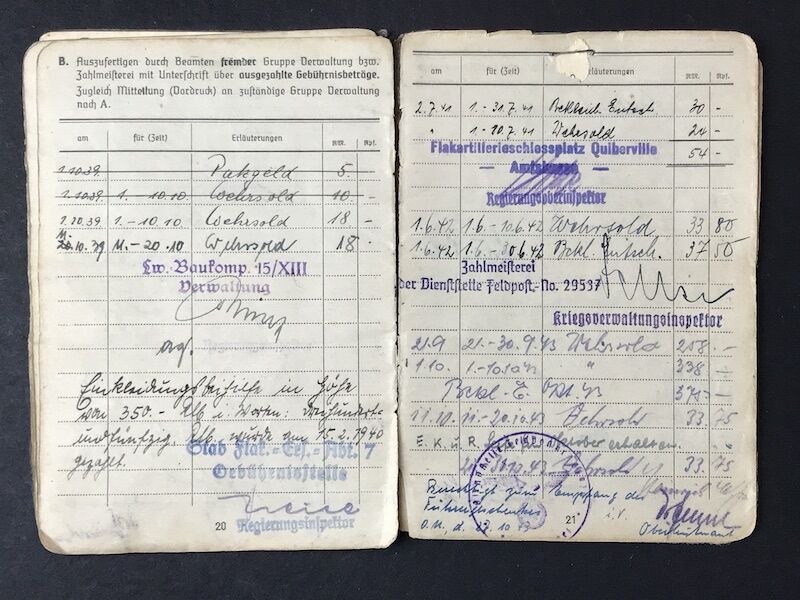 B. Auszufertigen durch Beamten fremder Gruppe Verwaltung bzw.
Zahlmeisterei mit Unterschrift über ausgezahlte Gebührnisbeträge.
Zugleich Mitteilung (Vordruck) an zuständige Gruppe Verwaltung
nach A.
am für (Zeit) Erläuterungen RM. Rpf.
1.10.39. 5 -
1.10.39. 1. - 10.10. Wehrsold 10 -
1.10.39 1. - 10.10 Wehrsold 18 -
10.39 11. - 20.10 Wehrsold 18 -
Lw. Baukomp. 15/XIII
Verwaltung
Einkleidungsbeihilfe in Höhe
von 350.- RM i. Worten: Dreihundert-
undfünfzig RM wurde am 15.2.1940
gezahlt.
Stab Flak.-Ers.-Abt. 7
Gebührnisstelle
Regierungsinspektor
20
am für (Zeit) Erläuterungen RM. Rpf.
2.7.41 1. - 31.7.41 Bekleid. Entsch. 30 -
" 1. - 10.7.41 Wehrsold 24 -
Flakartillerieschiessplatz Quiberville 54 -
- Amtskasse -
Regierungsoberinspektor
1.6.42 1.6. - 10.6.42 Wehrsold 33 80
1.6.42 1.6. - 30.6.42 Bekl. Entsch. 37 50
Zahlmeisterei
der Dienststelle Feldpost-No. 29537
Kriegsverwaltungsinspektor
21.9 21. - 30.9.43 Wehrsold
1.10. 1. - 10.10.43 "
Bekl. E. Okt. 43
11.10. 11. - 20.10.43 Wehrsold 33.75
E. K. u. R. für Oktober erhalten.
10.43 Wehrsold 33.75
Berechtigt zum Empfang des
Führergeschenkes
O.U., d. 10.43 i.V.
Oberleutnant
21